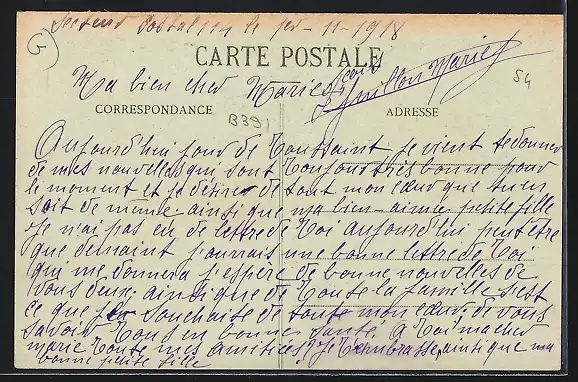 Secteur Postal 114 le 1er - 11 - 1918
CARTE POSTALE
Ma bien cher Marie
Marie
54
CORRESPONDANCE
B391
ADRESSE
Aujourd'hui jour de Toussaint je vient te donner
de mes nouvelles qui sont toujours très bonne pour
le moment et je désirer de tout mon cœur que tu en
soit de même ainsi que ma bien-aimée petite fille
je n'ai pas eu de lettre de toi aujourd'hui peut être
que demaint j'aurais une bonne lettre de toi
qui me donnera j'espère de bonne nouvelles de
vous deux, ainsi que de toute la famille s'est
ce que je souhaite de toute mon cœur, de vous
savoir tous en bonne santé, a toi ma cher
marie toute mes amitiées, Je t'embrasse, ainsi que ma
bonne petite fille